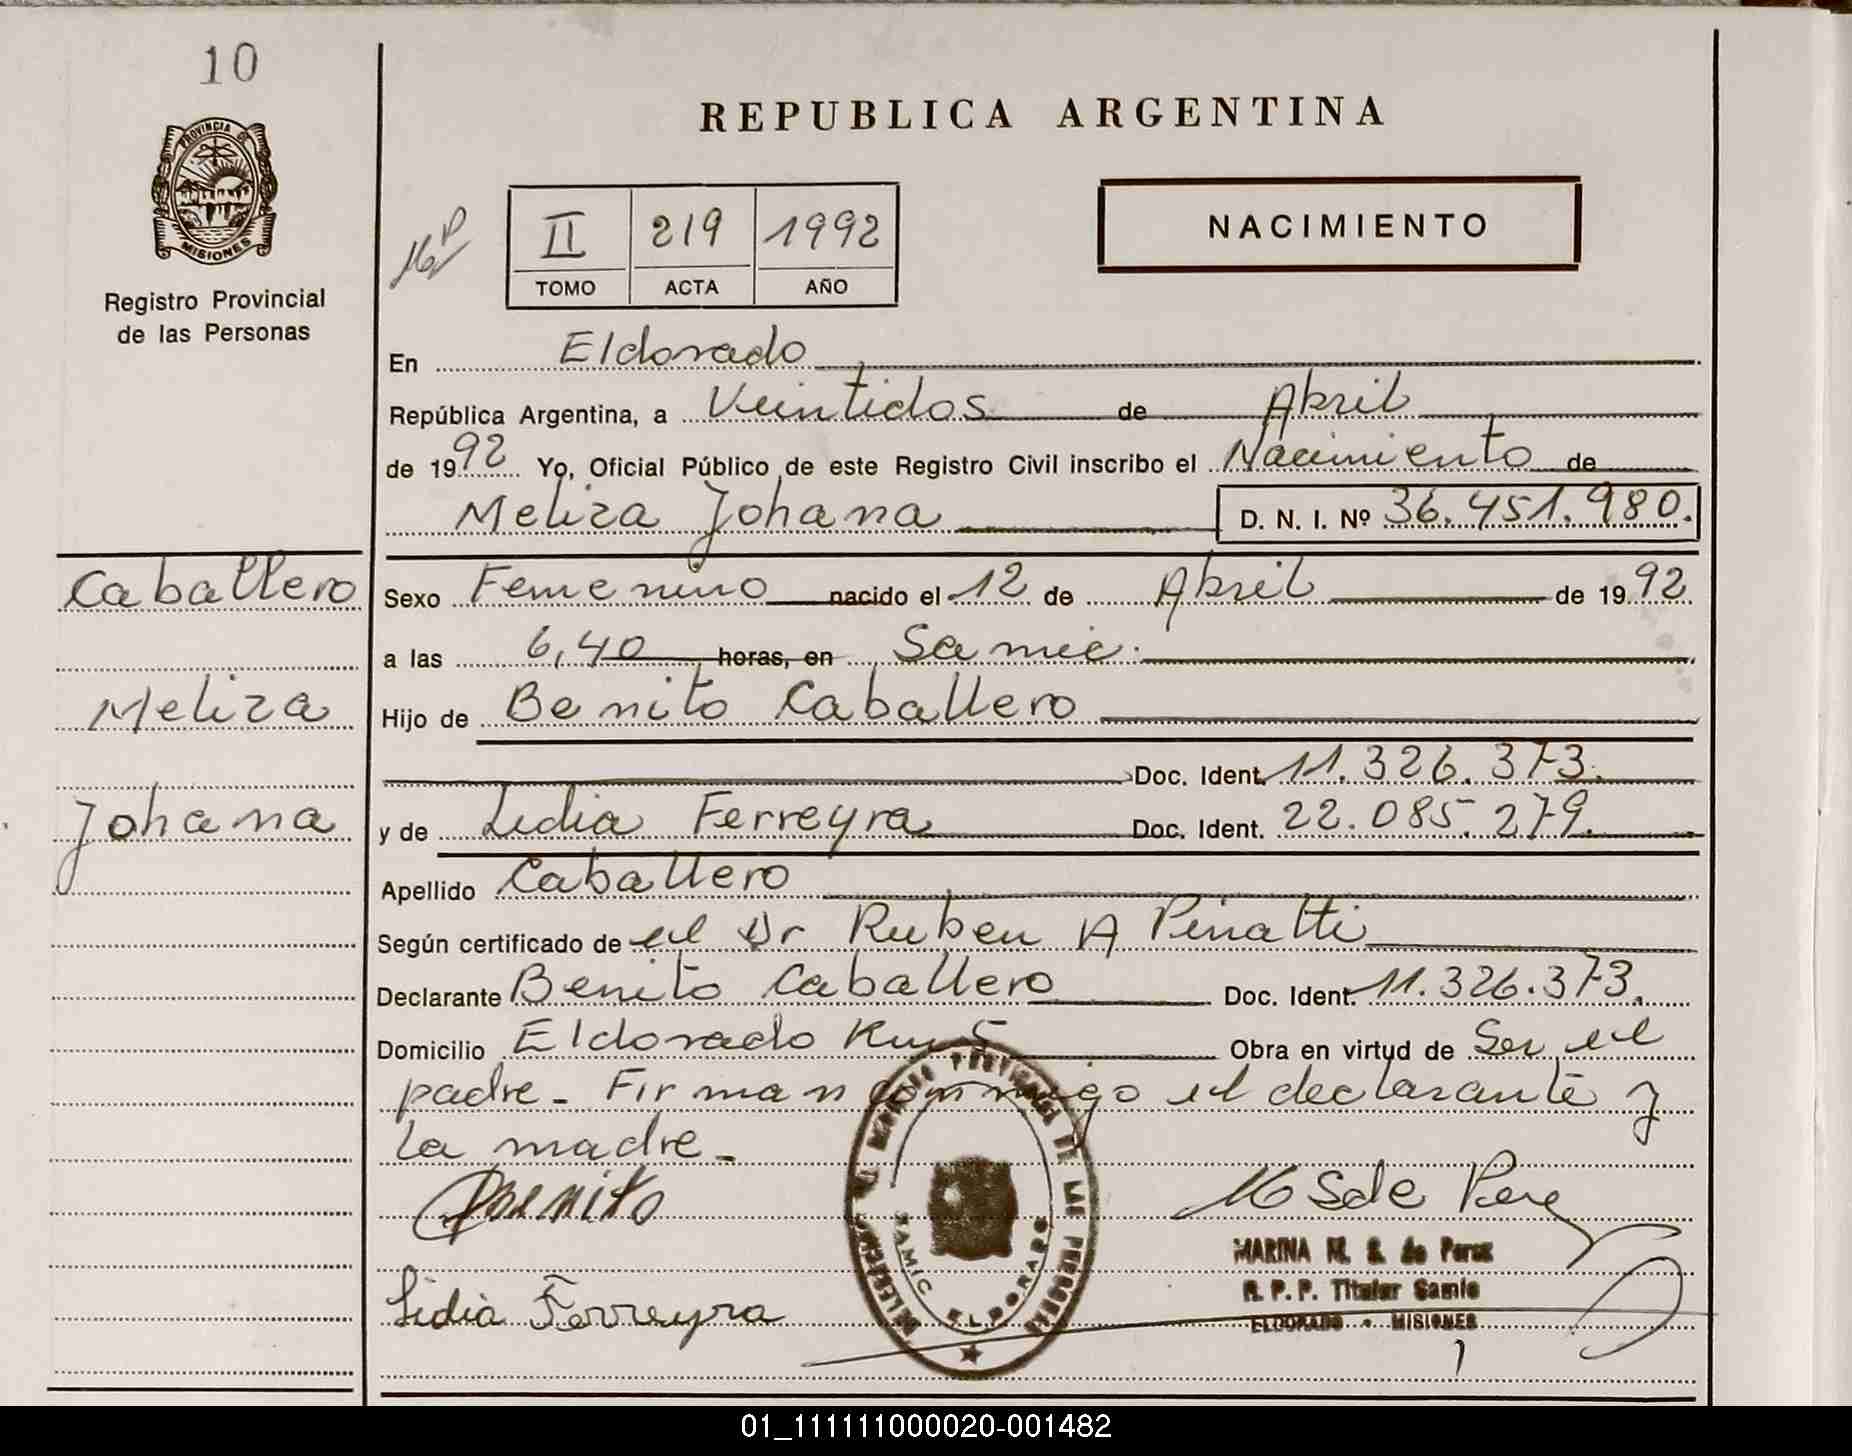 10
PROVINCIA DE
MISIONES
Registro Provincial
de las Personas
REPUBLICA ARGENTINA
II 219 1992
TOMO ACTA AÑO
NACIMIENTO
En Eldorado
República Argentina, a Veintidos de Abril
de 1992 Yo, Oficial Público de este Registro Civil inscribo el Nacimiento de
Meliza Johana D. N. I. Nº 36.451.980.
Caballero
Meliza
Johana
Sexo Femenino nacido el 12 de Abril de 1992
a las 6,40 horas, en Samic.
Hijo de Benito Caballero
Doc. Ident. 11.326.373.
y de Lidia Ferreyra Doc. Ident. 22.085.279.
Apellido Caballero
Según certificado de el Dr Ruben A Pinatti
Declarante Benito Caballero Doc. Ident. 11.326.373.
Domicilio Eldorado Km 5 Obra en virtud de Ser el
padre - Firman conmigo el declarante y
la madre -
Benito
M S de Perez
MARINA M. S. de Perez
R. P. P. Titular Samic
ELDORADO - MISIONES
Lidia Ferreyra
SAMIC ELDORADO
01_111111000020-001482